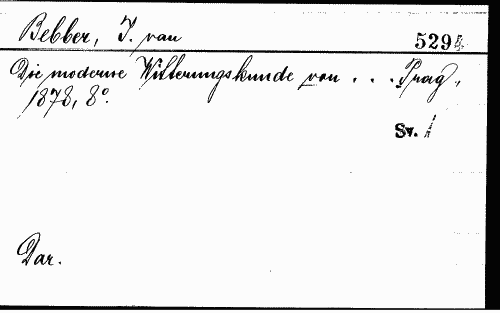 Bebber, J. van
529
Die moderne Witterungskunde von . . . Prag,
1878, 8°.
Sv. 1
Dar.